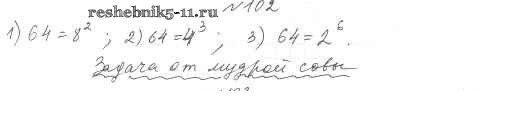 reshebnik5-11.ru №102
1) 64 = 8² ; 2) 64 = 4³ ; 3) 64 = 2⁶.
Задача от мудрой совы